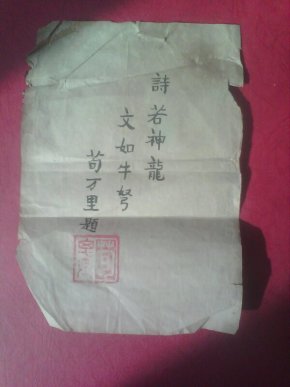 詩若神龍
文如牛弩
苟万里題